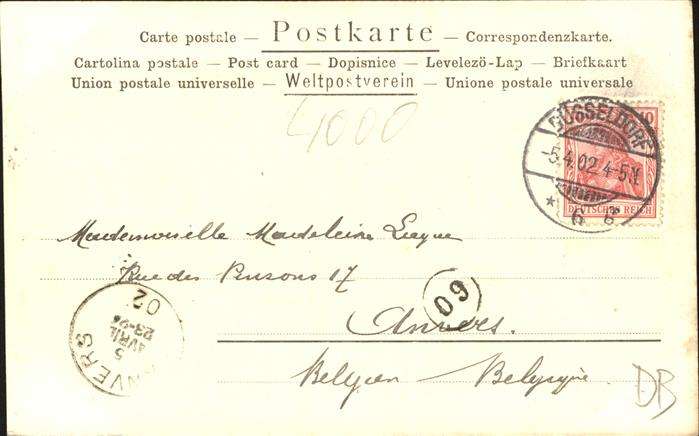 Carte postale — Postkarte — Correspondenzkarte.
Cartolina postale — Post card — Dopisnice — Levelezö-Lap — Briefkaart
Union postale universelle — Weltpostverein — Unione postale universale
4000
10
DÜSSELDORF
-5.4.02.4-5N.
* 6 g
DEUTSCHES REICH
Mademoiselle Madeleine
Rue des Pinsons 17
09
Anvers.
ANVERS
5
AVRIL
23-24
02
Belgien Belgique
DB